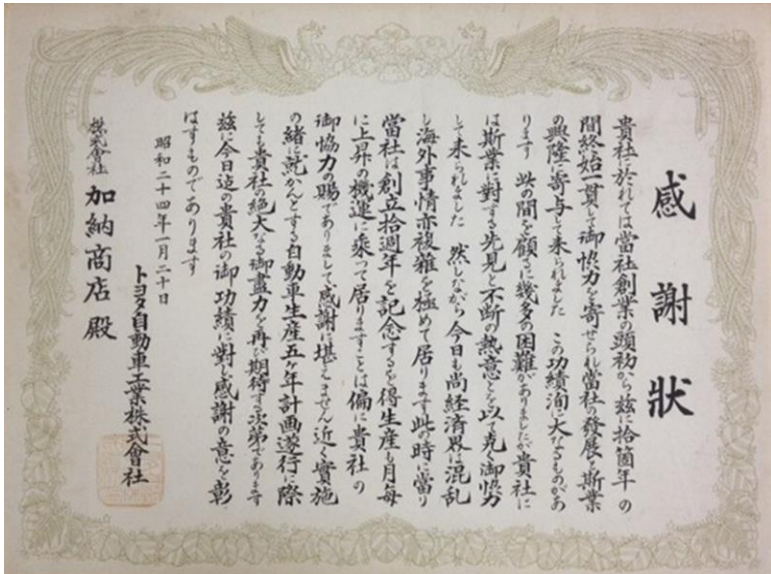 感謝狀
貴社に於れては當社創業の頭初から茲に拾箇年の
間終始一貫して御恊力を寄せられ當社の發展と斯業
の興隆に寄与して来られました この功績洵に大なるものがあ
ります 此の間を顧るに幾多の困難がありましたが貴社に
は斯業に対する先見と不断の熱意とを以て克く御恊力
して来られました 然しながら今日も尚経済界は混乱
し海外事情亦複雑を極めて居ります此の時に當り
當社は創立拾週年を記念するを得生産も月毎
に上昇の機運に乗つて居りますことは偏に貴社の
御恊力の賜でありまして感謝に堪えません近く實施
の緒に就かんとする自動車生産五ヶ年計画遂行に際
しても貴社の絶大なる御盡力を再び期待する次第であります
茲に今日迄の貴社の御功績に對し感謝の意を彰
はすものであります
昭和二十四年一月二十日
トヨタ自動車工業株式會社
株式會社 加納商店殿